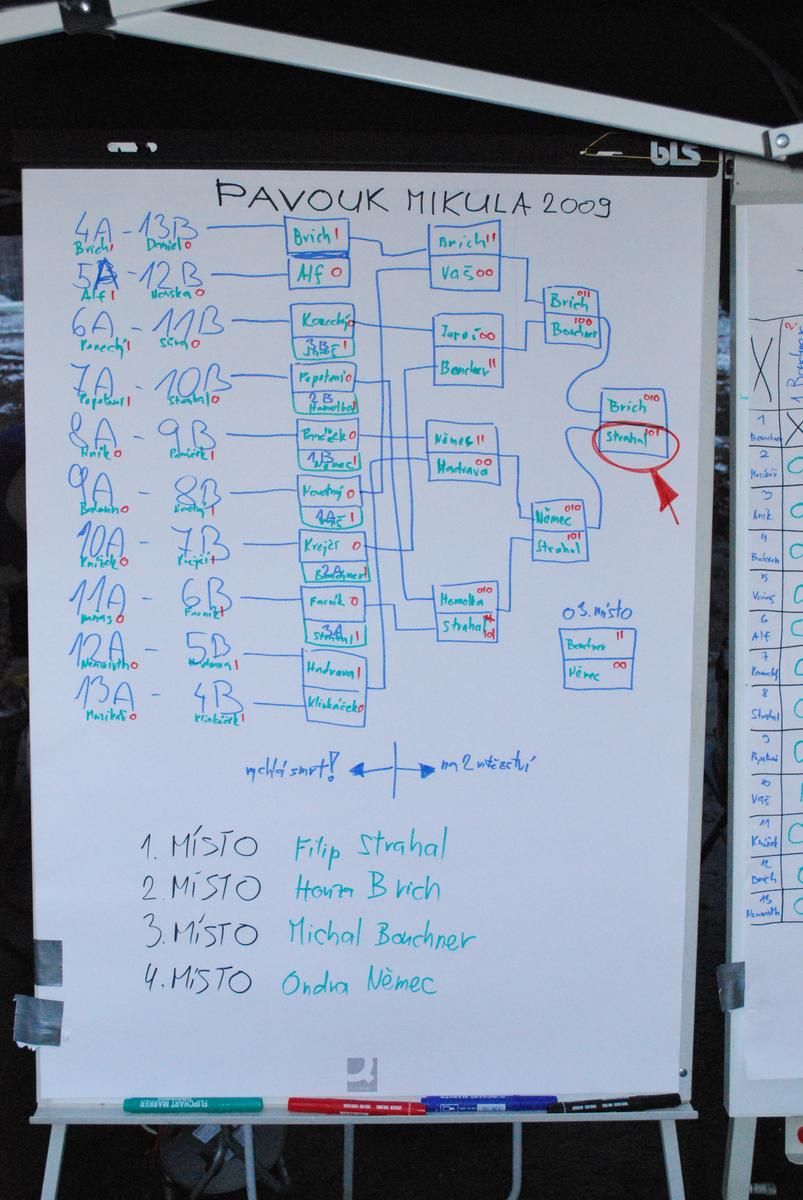 bLS
PAVOUK MIKULA 2009
4A - 13B
Brich 1 Daniel 0
Brich 1
Brich 11
5A - 12B
Alf 1 0
Alf 0
Vaš 00
6A - 11B
Konechý 1 0
Konechý 0
3B 1
Jarví 00
Bouchner 11
Brich 011
Bouchner 100
7A - 10B
Popoteni 1 Strahal 0
Popoteni 0
2B
Homolka 1
8A - 9B
0 1
0
1B
Němec 1
Němec 11
Hadrava 00
Brich 010
Strahal 101
9A - 8B
0 1
Novotný 0
1A
Vaš 1
10A - 7B
Knížek 0 Krejčí 1
Krejčí 0
2A
Bouchner 1
Němec 010
Strahal 101
11A - 6B
0 Farník 1
Farník 0
3A
Strahal 1
Homolka 010
Strahal 101
12A - 5B
Neuwirth 0 Hadrava 1
Hadrava 1
13A - 4B
0 Klinkáček 1
Klinkáček 0
O 3. místo
Bouchner 11
Němec 00
rychlá smrt! na 2 vítězství
1. MÍSTO Filip Strahal
2. MÍSTO Honza Brich
3. MÍSTO Michal Bouchner
4. MÍSTO Ondra Němec
FLIPCHART MARKER
1
Bouchner
2
3
Kník
4
5
6
Alf
7
Konechý
8
Strahal
9
Popoteni
10
Vaš
11
Knížek
12
Brich
13
Neuwirth